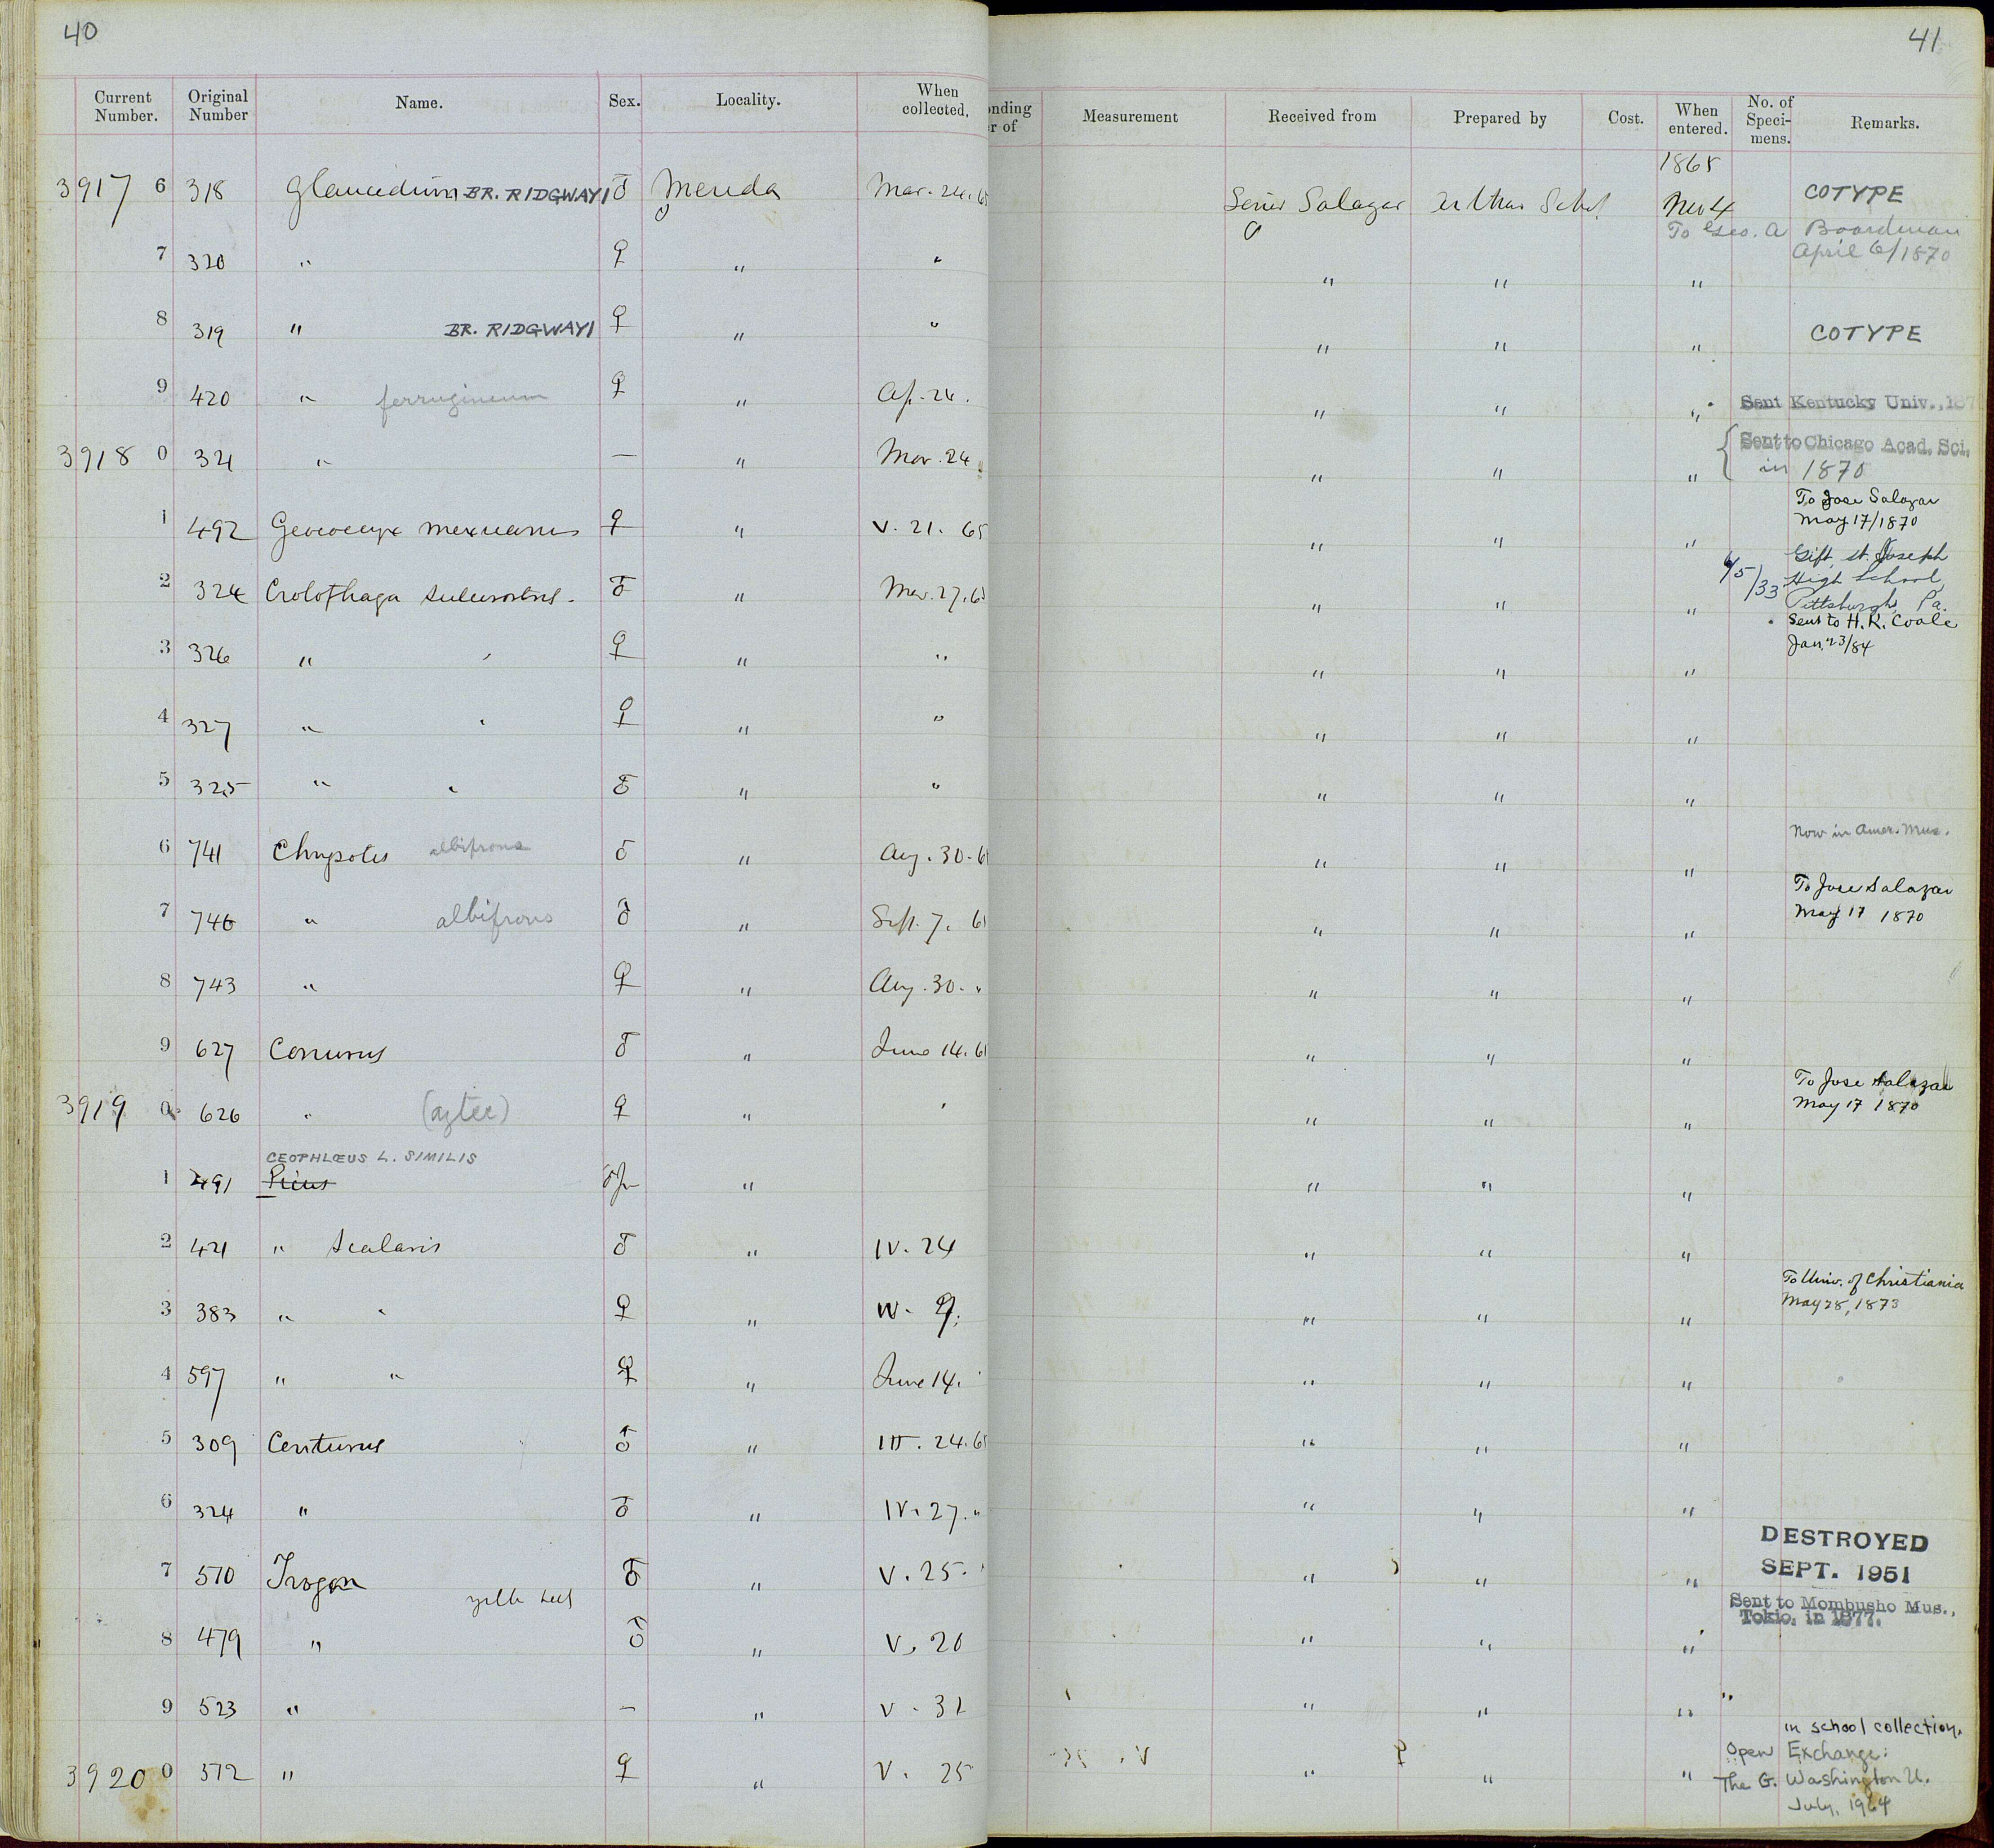 40
41
Current Number. Original Number Name. Sex. Locality. When collected.
onding r of Measurement Received from Prepared by Cost. When entered. No. of Speci- mens. Remarks.
1865
3917 6 318 Glaucidium BR. RIDGWAYI ♂ Merida Mar. 24. 65 Señor Salazar Arthur Schot Nov 4 COTYPE
To Geo. A Boardman
April 6/1870
7 320 " ♀ " " " " "
8 319 " BR. RIDGWAYI ♀ " " " " " COTYPE
9 420 " ferrugineum ♀ " Ap. 24. " " " Sent Kentucky Univ., 187
3918 0 321 " — " Mar. 24 " " " Sent to Chicago Acad. Sci.
in 1870
To Jose Salazar
May 17/1870
1 492 Geococcyx mexicanus ♀ " V. 21. 65 " " "
Gift, St. Joseph
6/5/33 High School,
Pittsburgh, Pa.
2 324 Crotophaga sulcirostris. ♂ " Mar. 27. 65 " " "
Sent to H. K. Coale
Jan. 23/84
3 326 " " ♀ " " " " "
4 327 " " ♀ " " " " "
5 325 " " ♂ " " " " "
6 741 Chrysotis albifrons ♂ " Aug. 30. 6 " " " Now in Amer. Mus.
To Jose Salazar
May 17 1870
7 746 " albifrons ♂ " Sept. 7. 6 " " "
8 743 " ♀ " Aug. 30. " " " "
9 627 Conurus ♂ " June 14. 6 " " "
To Jose Salazar
May 17 1870
3919 0 626 " (aztec) ♀ " " " " "
CEOPHLŒUS L. SIMILIS
1 491 Picus ♂ " " " "
2 421 " Scalaris ♂ " IV. 24 " " "
To Univ. of Christiania
May 28, 1873
3 383 " " ♀ " IV. 9. " " "
4 597 " " ♀ " June 14. " " " "
5 309 Centurus ♂ " III. 24. 65 " " "
6 324 " ♂ " IV. 27. " " " "
DESTROYED
SEPT. 1951
7 570 Trogon ♂ " V. 25. " " " "
Sent to Mombusho Mus.,
Tokio, in 1877.
8 479 " ♂ " V. 20 " " "
9 523 " — " V. 31 " " " "
in school collection.
Open Exchange:
3920 0 572 " ♀ " V. 25 " " " The G. Washington U.
July, 1964